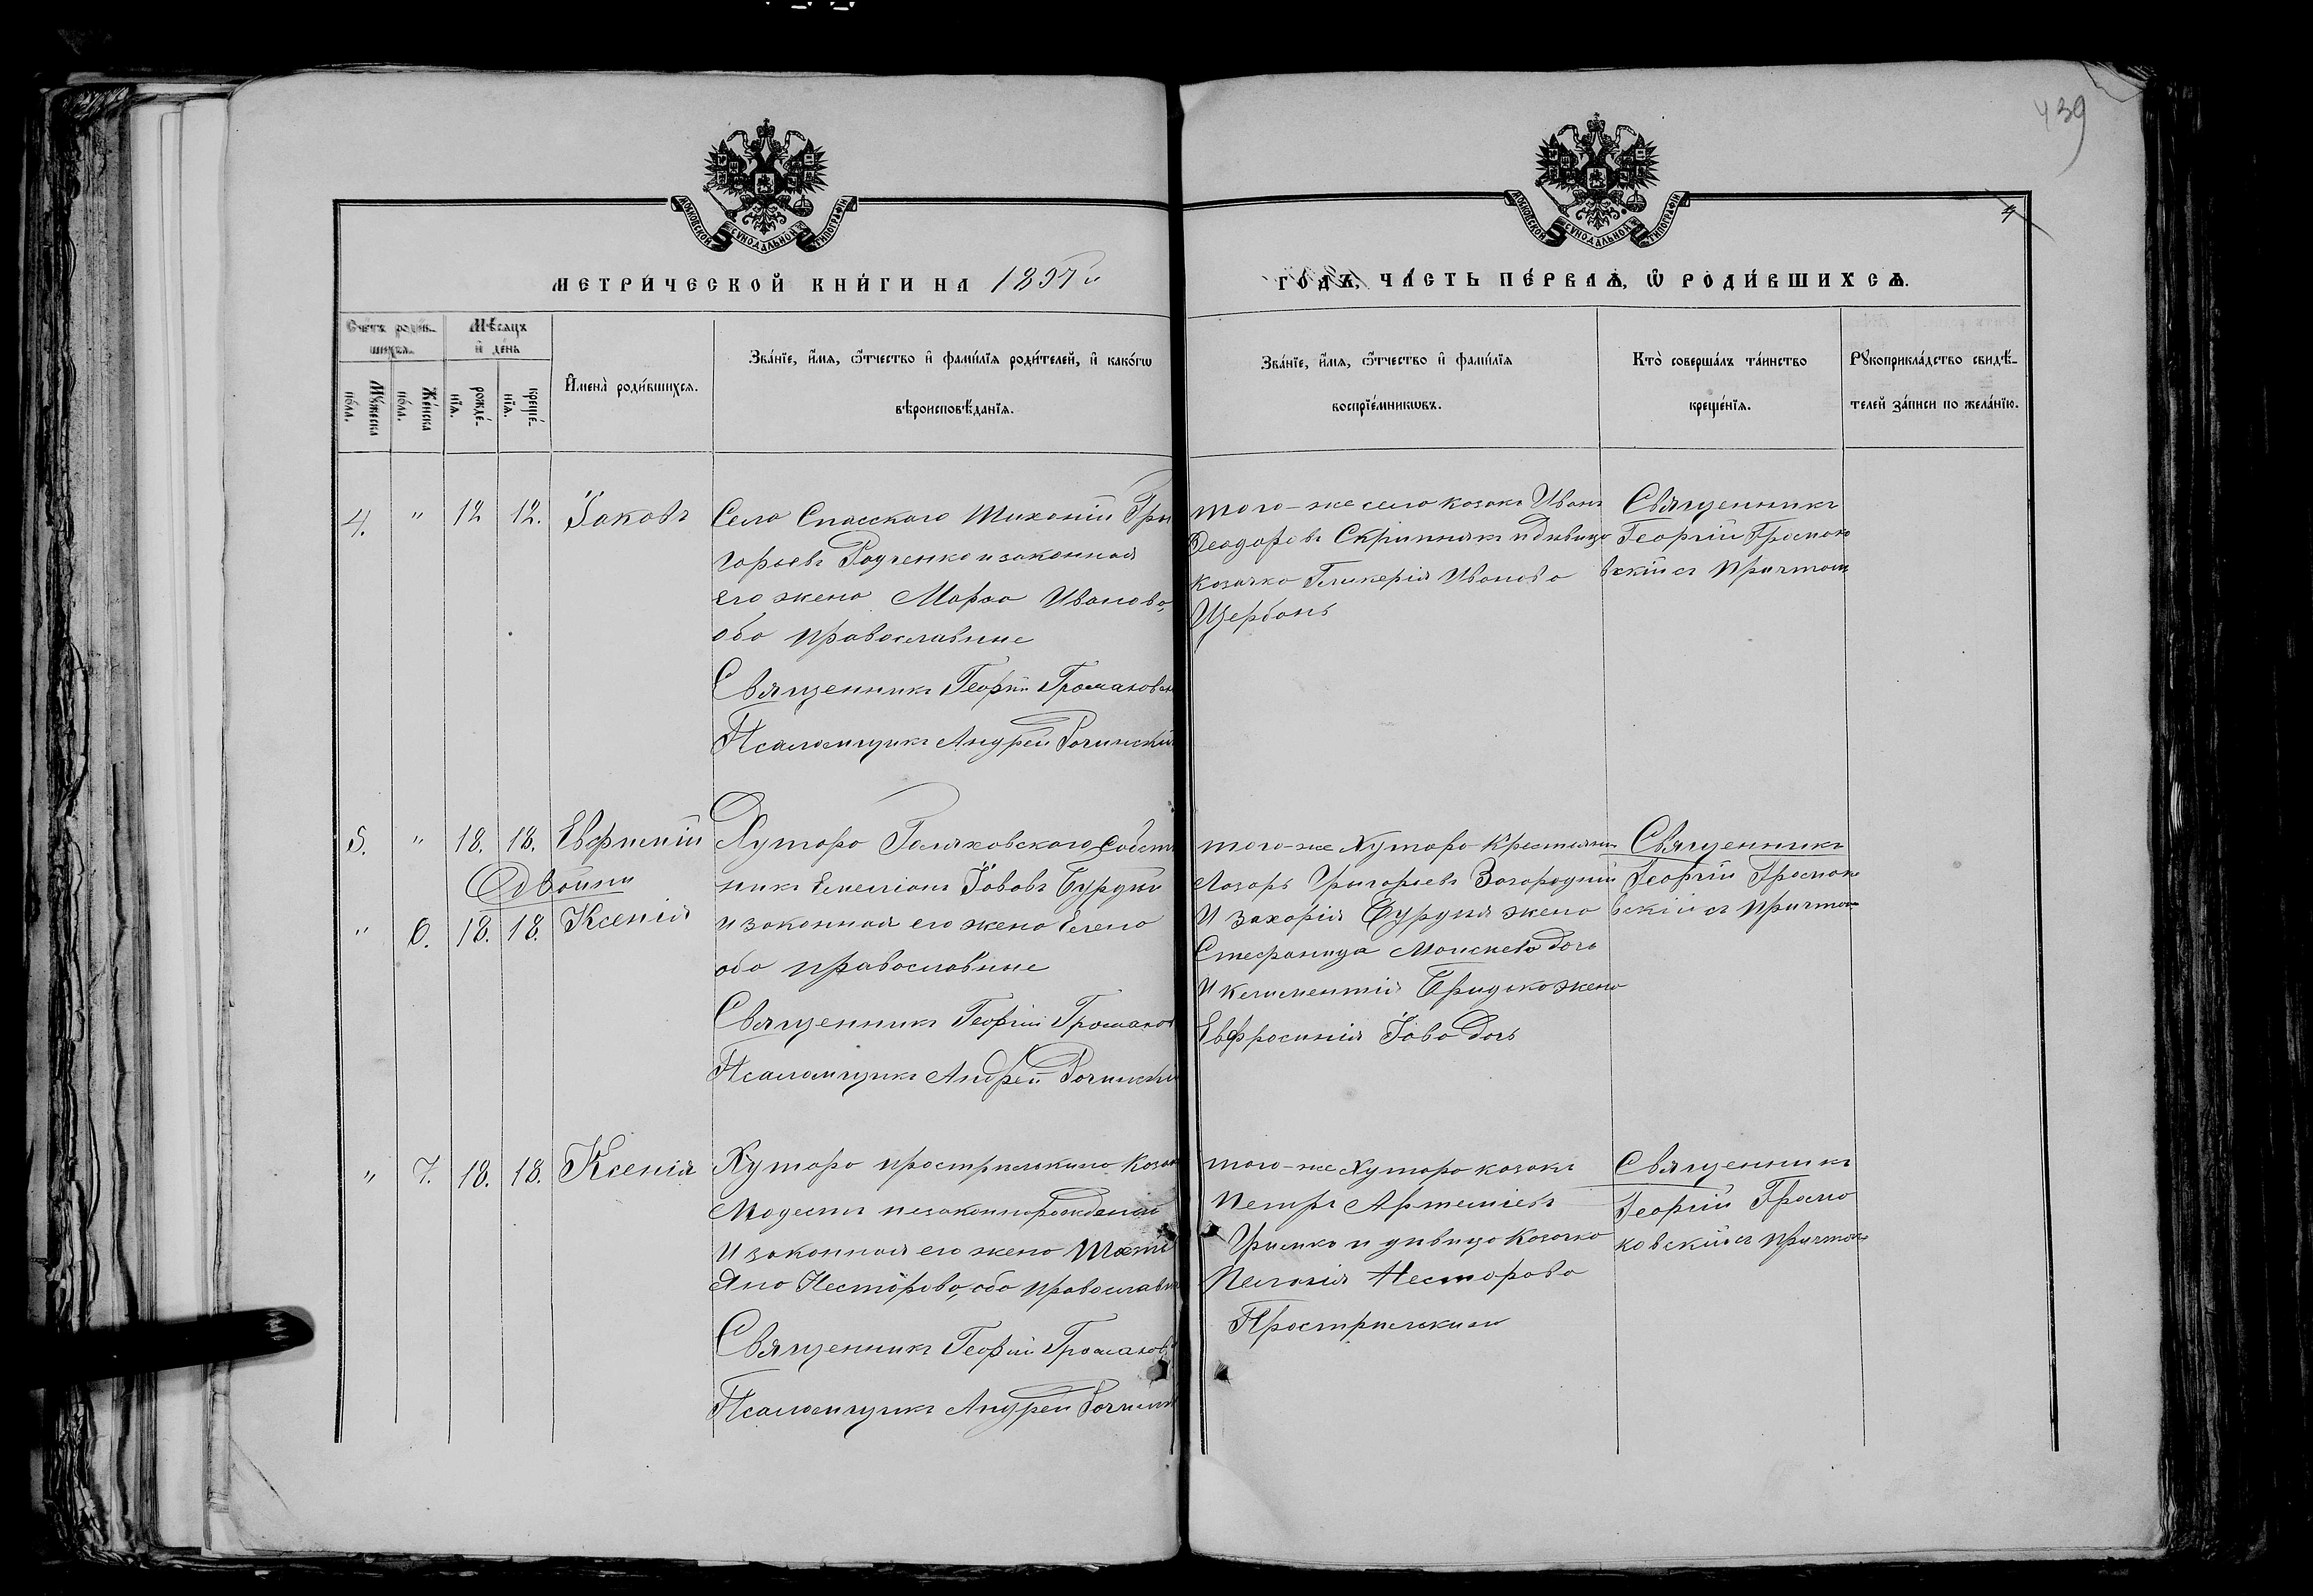 439
4
МОСКОВСКОЙ СѴНОДАЛЬНОЙ ТИПОГРАФІИ
МОСКОВСКОЙ СѴНОДАЛЬНОЙ ТИПОГРАФІИ
МЕТРИ́ЧЕСКОЙ КНИ́ГИ НА 1897й
ГО́ДЪ, ЧА́СТЬ ПЕ́РВАѦ, Ѿ РОДИ́ВШИХСѦ.
Сче́тъ роди́в-
шихсѧ.
Мѣ́сѧцъ
и҆ де́нь
Мꙋ́жеска
по́ла.
Же́нска
по́ла.
рожде́-
нїѧ.
креще́-
нїѧ.
И҆мена̀ роди́вшихсѧ.
Зва́нїе, и҆́мѧ, ѻ҆́тчество и҆ фами́лїѧ роди́телей, и҆ како́гѡ
вѣроисповѣ́данїѧ.
Зва́нїе, и҆́мѧ, ѻ҆́тчество и҆ фами́лїѧ
воспрїе́мникѡвъ.
Кто̀ соверша́лъ та́инство
креще́нїѧ.
Рꙋкоприкла́дство свидѣ́-
телей за́писи по жела́нїю.
4. " 12 12. Іаковъ
Села Спасскаго Тихоній Гри
горьевъ Радченко и законная
его жена Марѳа Иванова,
оба православные
Священникъ Георгій Громаковск
Псаломщикъ Андрей
того-же села козакъ Иванъ
Ѳеодоровъ Скрипникъ и дѣвица
козачка Гликерія Иванова
Щербань
Священникъ
Георгій Громако
вскій съ причтомъ
5. " 18. 18. Евфимій
Двойни
" 6. 18. 18. Ксенія
Хутора Голяховского собст
никъ Емеліанъ Іововъ Бурдун
и законная его жена Елена
оба православные
Священникъ Георгій Громаков
Псаломщикъ Андрей
того-же Хутора крестьянин
Лазарь Григорьевъ Загородній
и Захарія Бурдуна жена
Стефанида Моисеева дочь
и Климентія Гридька жена
Евфросинія Іова дочь
Священникъ
Георгій Громако
вскій съ причтом
" 7. 18. 18. Ксенія
Хутора козак
Модестъ незаконнорожденый
и законная его жена Тати
яна Несторова, оба православн
Священникъ Георгій Громаков
Псаломщикъ Андрей
того-же Хутора козакъ
Петръ Артеміевъ
и дѣвица козачка
Пелагія Несторова
Священникъ
Георгій Грома
ковскій съ причтом